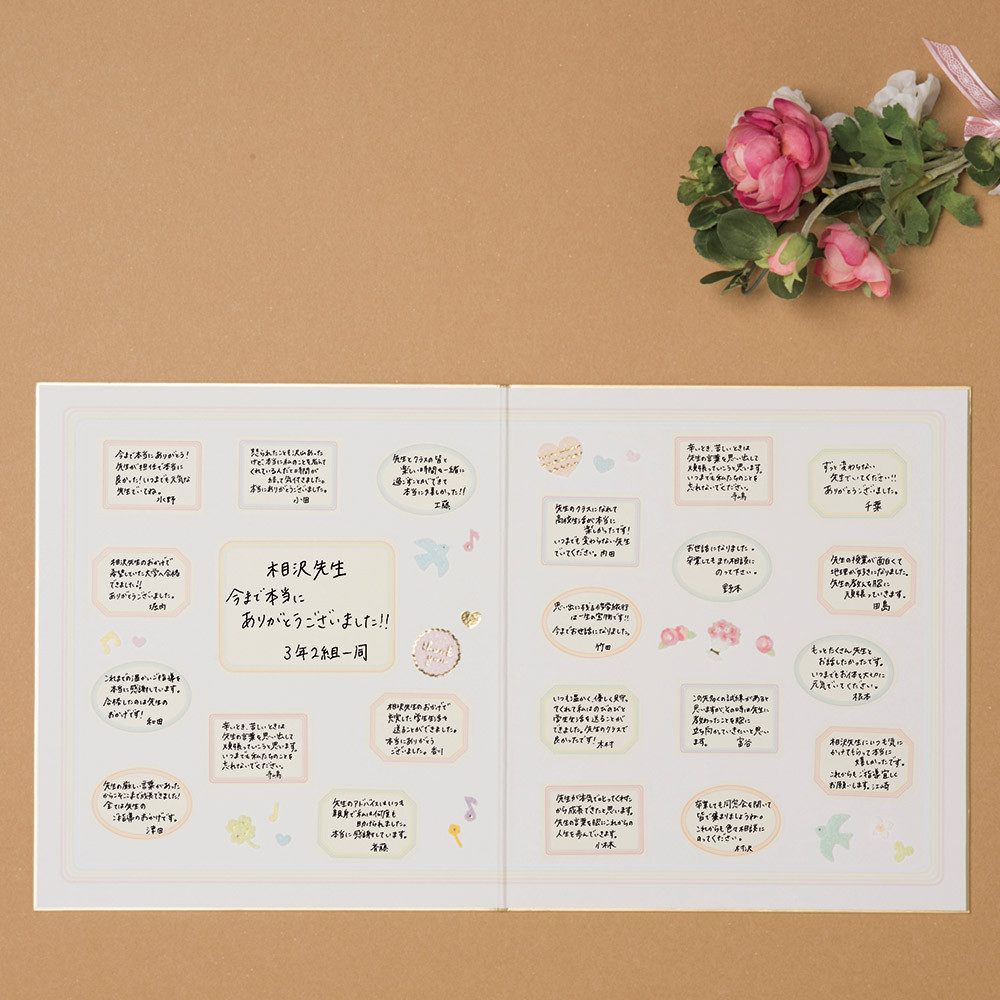 今まで本当にありがとう!
先生が担任で本当に
良かった!いつまでも元気な
先生でいてね。
水野
怒られたことも沢山あった
けど、本当に私のことを考えて
くれているんだと時間が
経って気付きました。
本当にありがとうございました。
小田
先生とクラスの皆と
楽しい時間を一緒に
過ごすことができて
本当に嬉しかった!!
工藤
相沢先生のおかげで
希望していた大学へ合格
できました!!
ありがとうございました。
堀内
相沢先生
今まで本当に
ありがとうございました!!
3年2組一同
thank you!
これまでの温かいご指導を
本当に感謝しています。
合格したのは先生の
おかげです! 和田
辛いとき、苦しいときは
先生の言葉を思い出して
頑張っていこうと思います。
いつまでも私たちのことを
忘れないでください。
寺島
相沢先生のおかげで
充実した学生生活を
送ることができました。
本当にありがとう
ございました。香川
先生の厳しい言葉があった
からこそここまで成長できました!
全ては先生の
ご指導のおかげです。
澤田
先生のアドバイスにもいつも
親身で私も何度も
助けられました。
本当に感謝をしています。
斉藤
辛いとき、苦しいときは
先生の言葉を思い出して
頑張っていこうと思います。
いつまでも私たちのことを
忘れないでください。
寺島
ずっと変わらない
先生でいてください!!
ありがとうございました。
千葉
先生のクラスになれて
高校生活が本当に
楽しかったです!
いつまでも変わらない先生
でいてください。内田
お世話になりました。
卒業してもまた相談に
のって下さい。
野本
先生の授業が面白くて
地理が好きになりました。
先生の教えを胸に
頑張っていきます。
田島
思い出に残る修学旅行
は一生の宝物です!!
今までお世話になりました。
竹田
もっとたくさん先生と
お話したかったです。
いつまでもお体を大切に
元気でいてください。
根本
いつも温かく、優しく見守っ
てくれて私はのびのびと
学生生活を送ることが
できました。先生のクラスで
良かったです! 木村
この先多くの試練があると
思いますがその時は先生に
教わったことを胸に
立ち向かっていきたいと思い
ます。富谷
相沢先生にいつも気に
かけてもらって本当に
嬉しかったです。
これからもご指導宜しく
お願いします。江崎
先生が本気で叱ってくれた
から成長できたと思います。
先生の言葉を胸にこれからの
人生を歩んでいきます。
小林
卒業しても同窓会を開いて
皆で集まりましょうね。
これからも色々相談に
のってください。
村沢